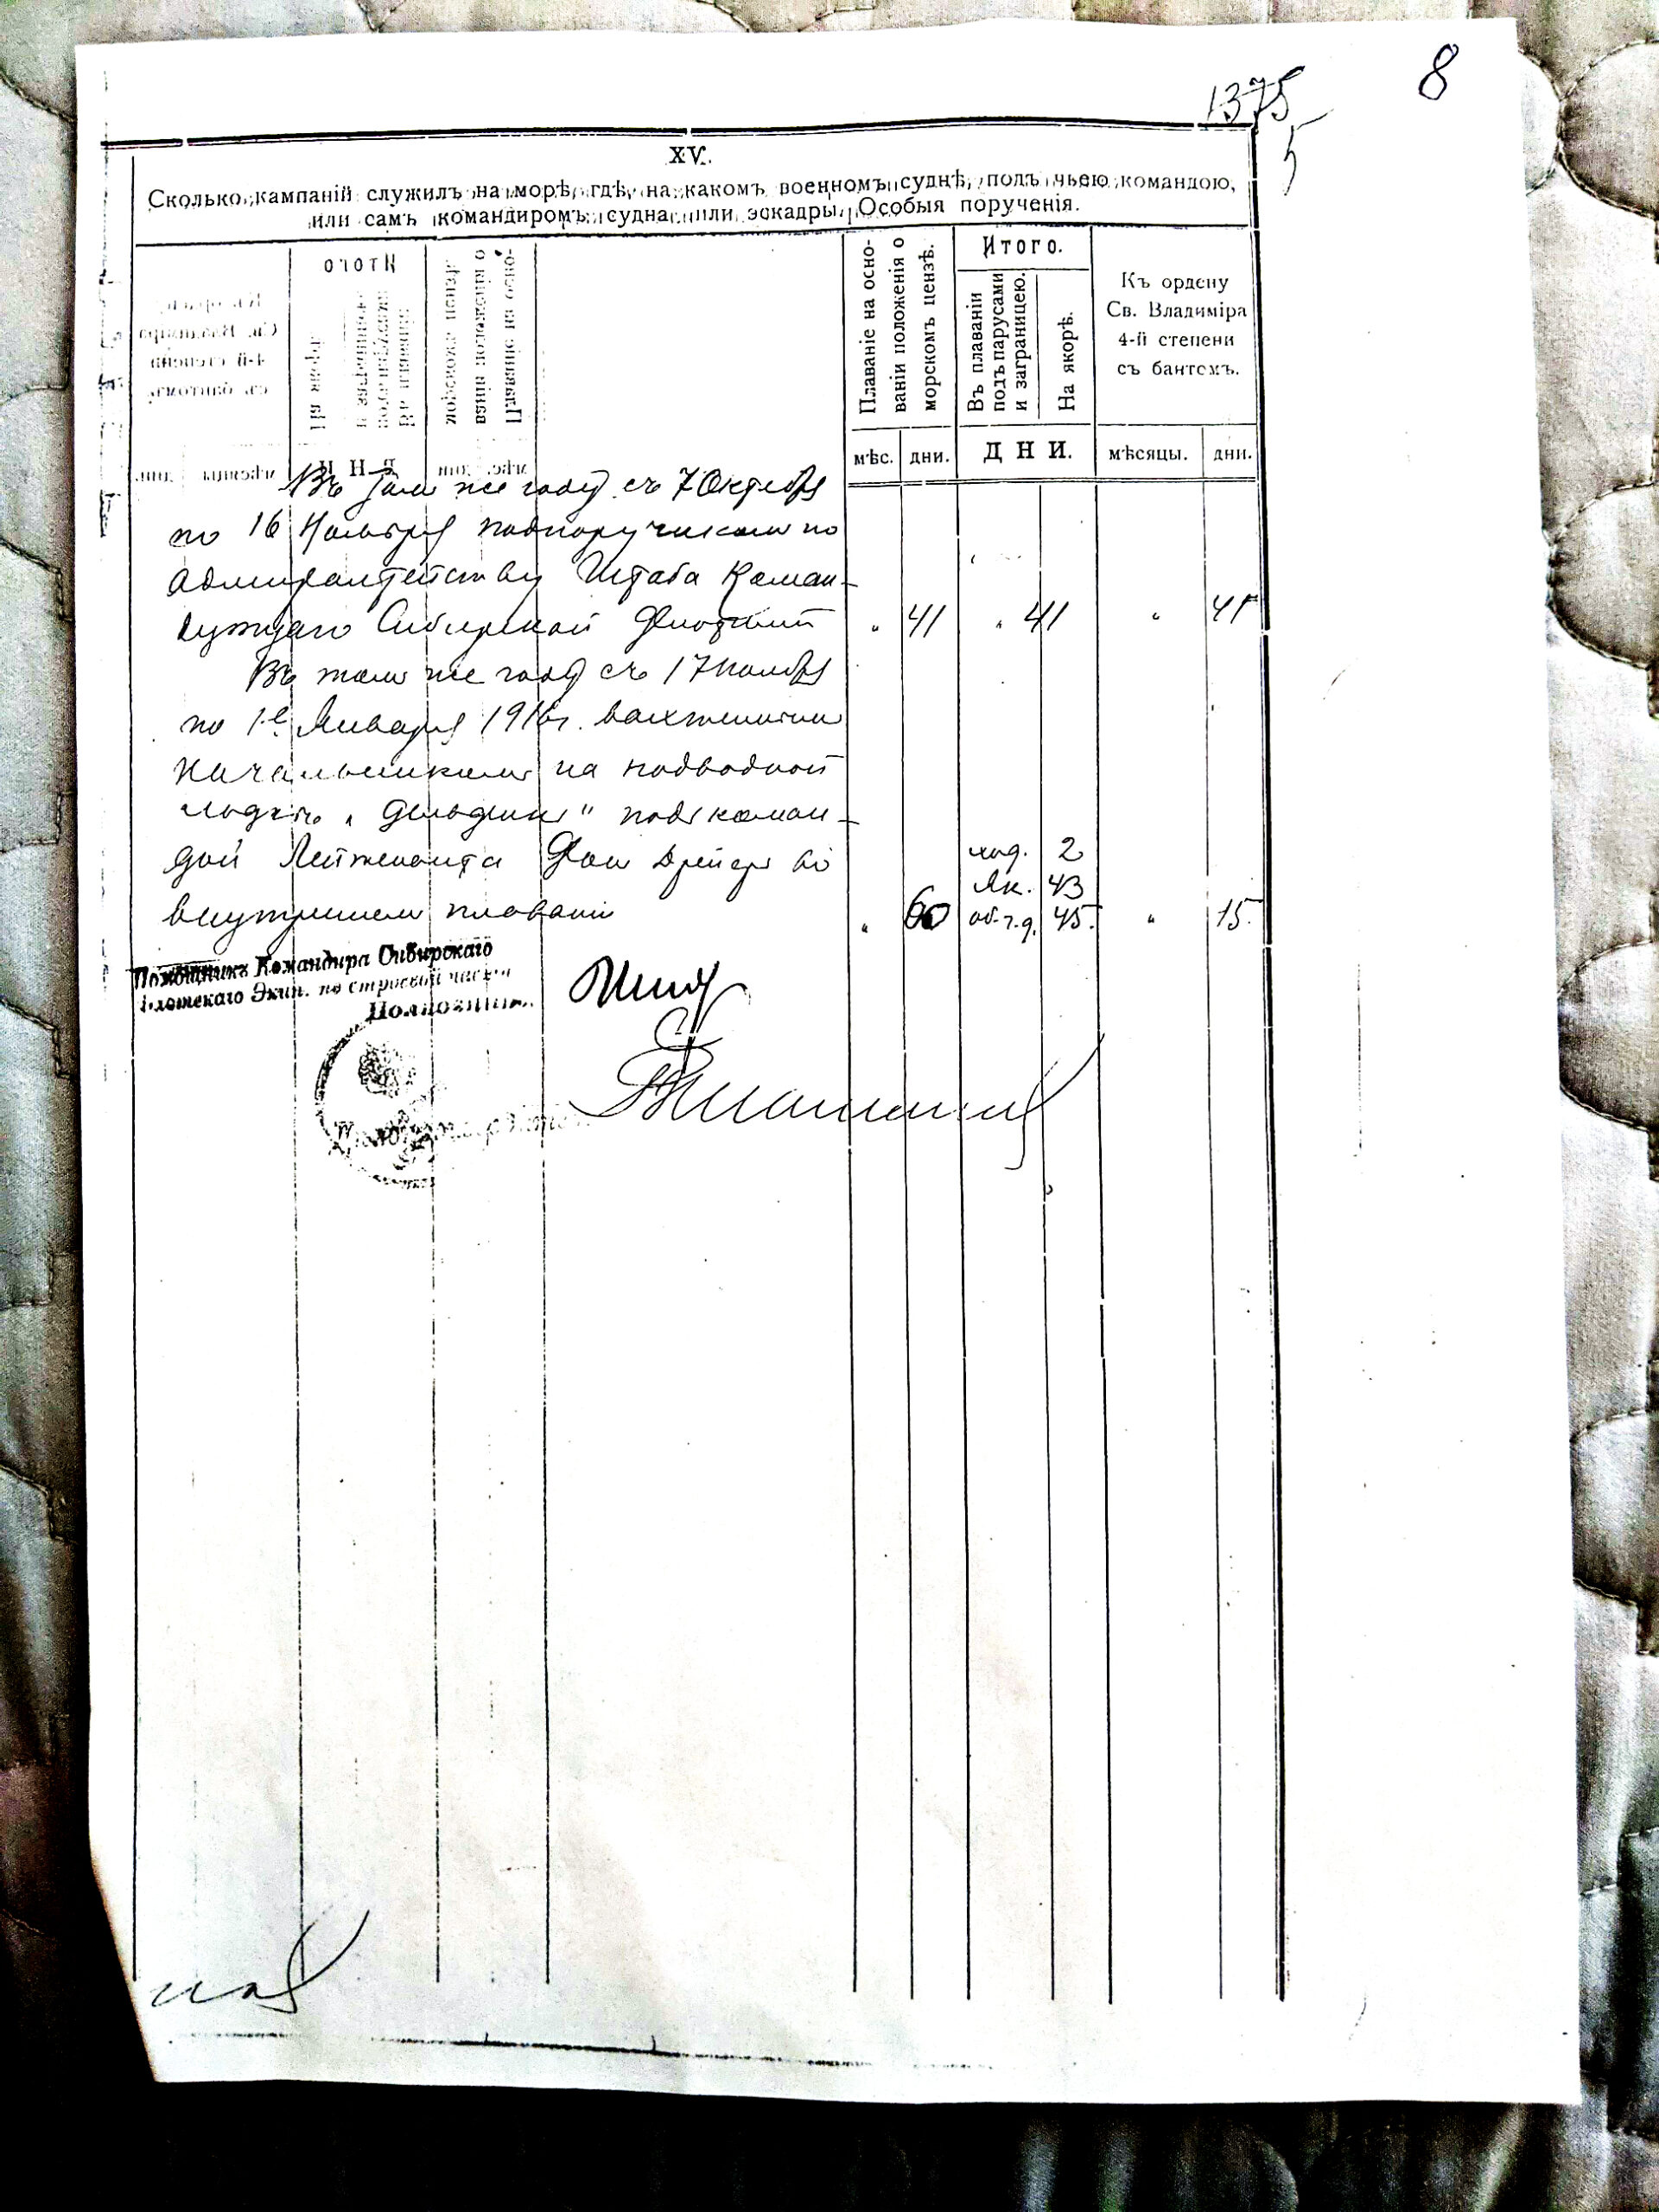 8
1375
5
XV.
Сколько кампаній служилъ на морѣ, гдѣ, на какомъ военномъ суднѣ, подъ чьею командою,
или самъ командиромъ судна или эскадры. Особыя порученія.
Плаваніе на осно-
ваніи положенія о
морскомъ цензѣ.
Итого.
Въ плаваніи
подъ парусами
и заграницею.
На якорѣ.
Къ ордену
Св. Владиміра
4-й степени
съ бантомъ.
мѣс. дни. ДНИ. мѣсяцы. дни.
Въ томъ же году съ 7 Октября
по 16 Ноября подпоручикомъ по
Адмиралтейству Штаба Коман-
дующаго Сибирской Флотиліи " 41 " 41 " 41
Въ томъ же году съ 17 Ноября
по 1-е Января 1916 г. вахтеннымъ
Начальникомъ на подводной
лодкѣ „Дельфинъ" подъ коман-
дой Лейтенанта Фон Дрейера во ход. 2
Як. 43
внутреннемъ плаваніи " 60 45 " 15
Помощникъ Командира Сибирскаго
Флотскаго Экип. по строевой части
Полковникъ